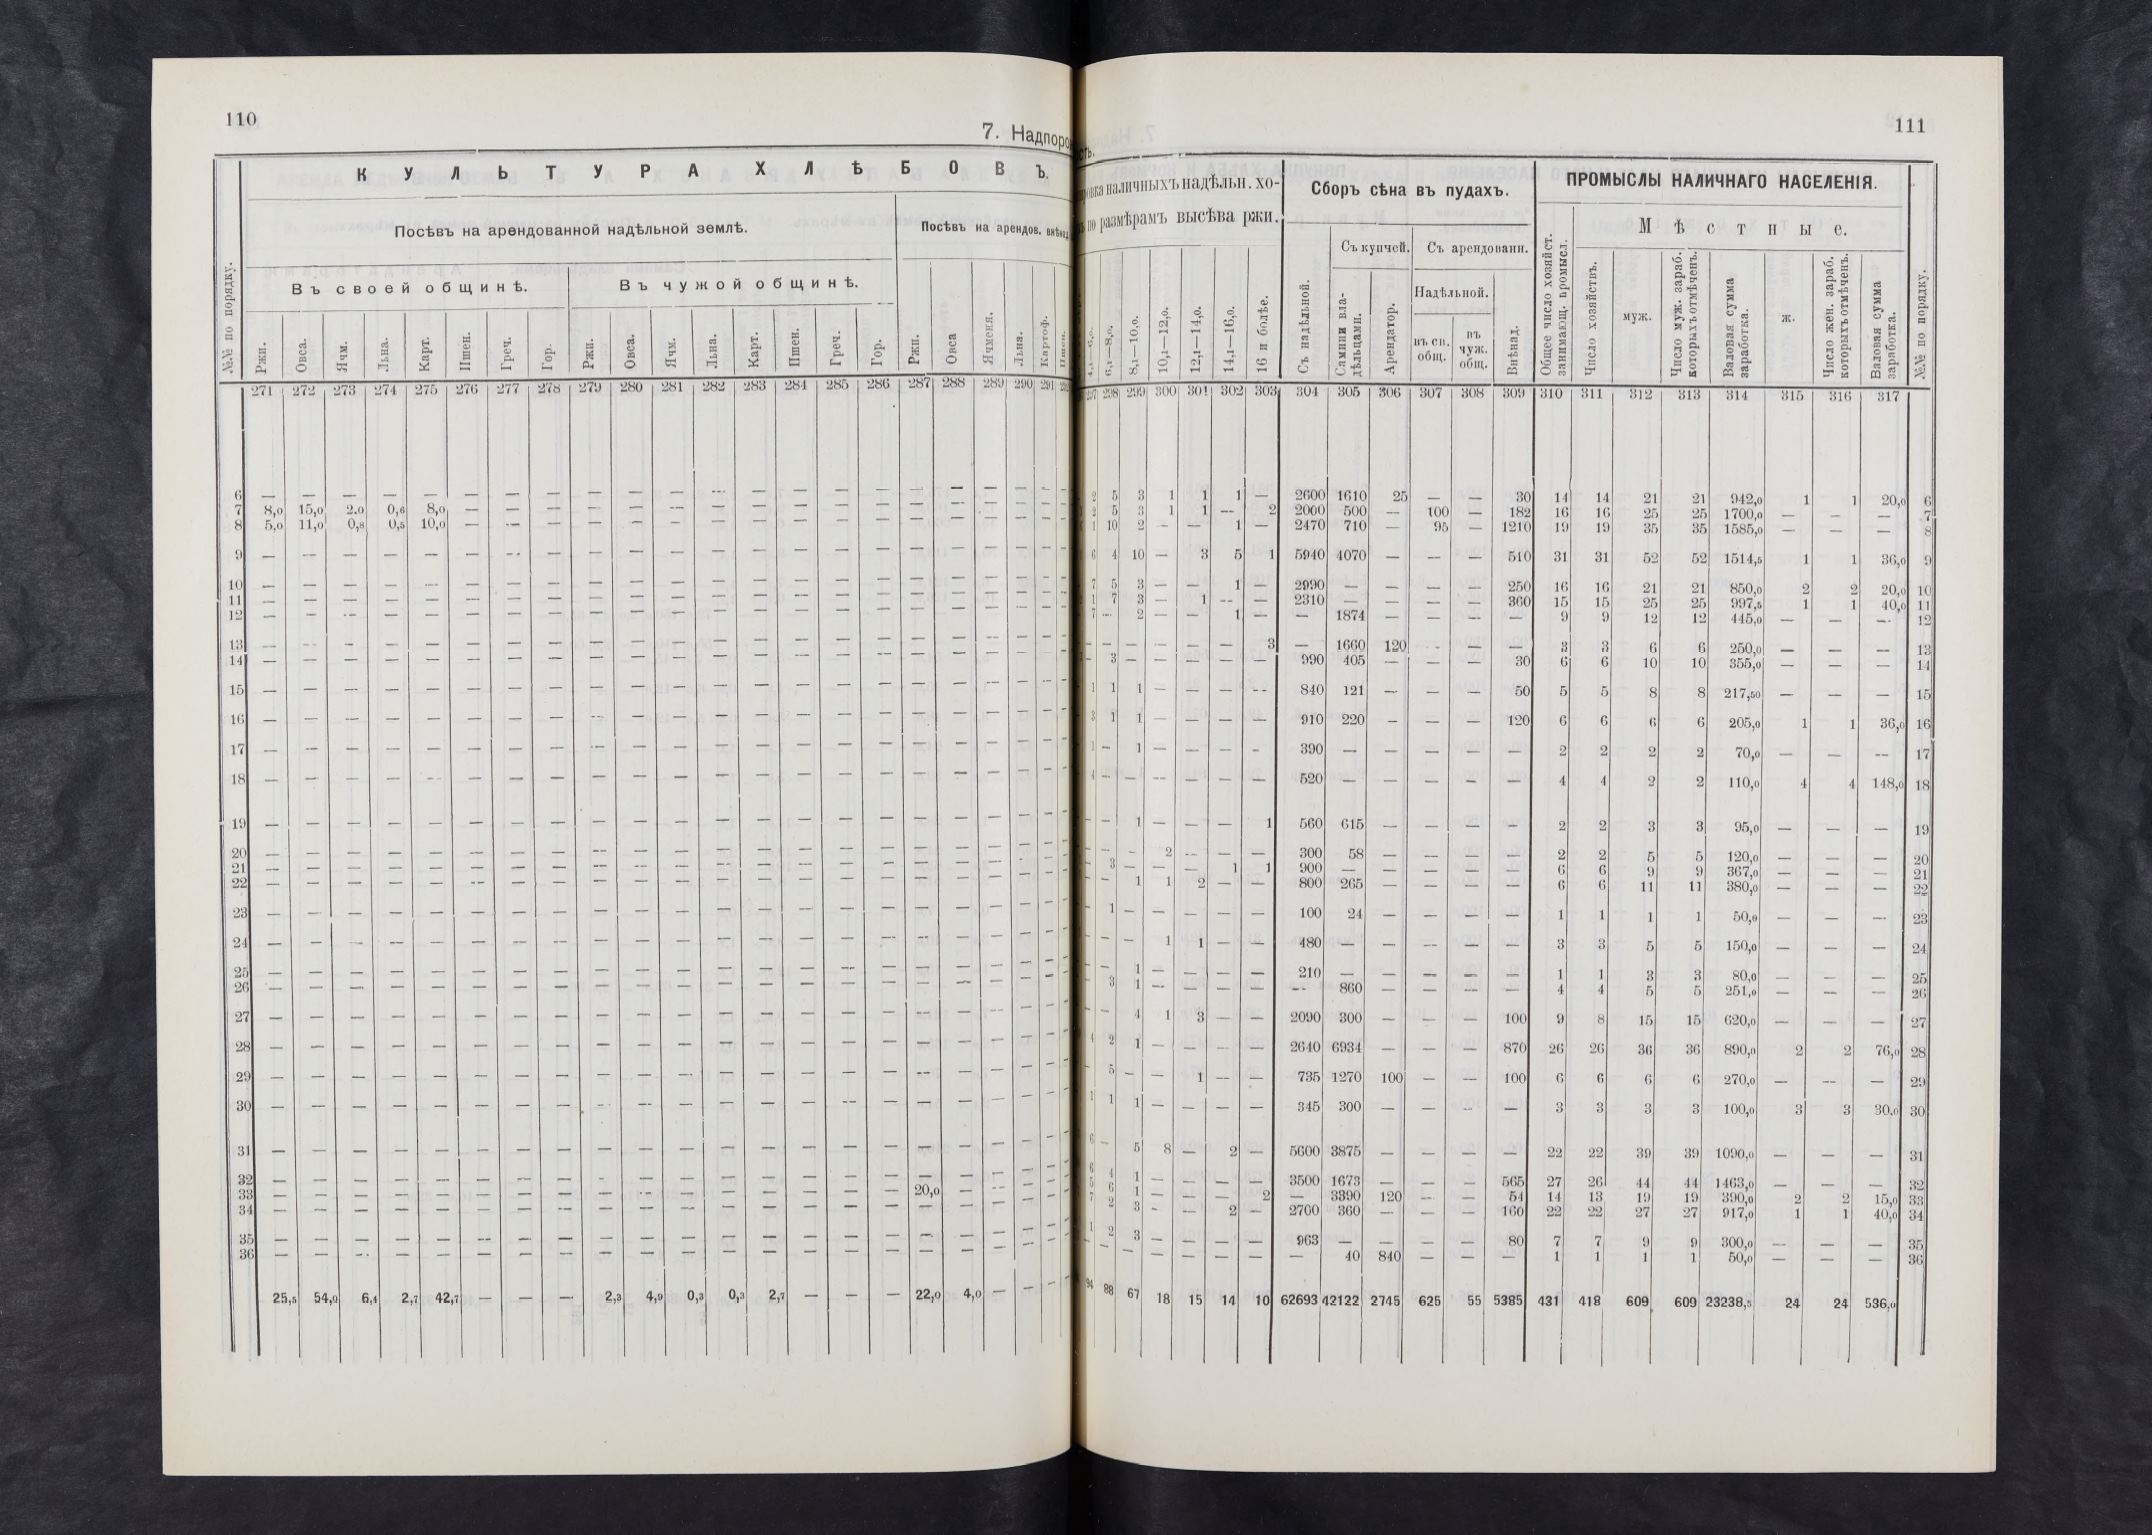 110
7. Надпоро
К У Л Ь Т У Р А Х Л Ѣ Б О В Ъ.
№№ по порядку.
Посѣвъ на арендованной надѣльной землѣ.
Посѣвъ на арендов. внѣнад.
Въ своей общинѣ.
Въ чужой общинѣ.
Ржи. Овса. Ячм. Льна. Карт. Пшен. Греч. Гор. Ржи. Овса. Ячм. Льна. Карт. Пшен. Греч. Гор. Ржи. Овса Ячменя. Льна. Картоф. Пшен.
271 272 273 274 275 276 277 278 279 280 281 282 283 284 285 286 287 288 289 290 291
6 — — — — — — — — — — — — — — — — — — — — — —
7 8,0 15,0 2.0 0,6 8,0 — — — — — — — — — — — — — — — — —
8 5,0 11,0 0,8 0,5 10,0 — — — — — — — — — — — — — — — — —
9 — — — — — — — — — — — — — — — — — — — — — —
10 — — — — — — — — — — — — — — — — — — — — — —
11 — — — — — — — — — — — — — — — — — — — — — —
12 — — — — — — — — — — — — — — — — — — — — — —
13 — — — — — — — — — — — — — — — — — — — — — —
14 — — — — — — — — — — — — — — — — — — — — — —
15 — — — — — — — — — — — — — — — — — — — — — —
16 — — — — — — — — — — — — — — — — — — — — — —
17 — — — — — — — — — — — — — — — — — — — — — —
18 — — — — — — — — — — — — — — — — — — — — — —
19 — — — — — — — — — — — — — — — — — — — — — —
20 — — — — — — — — — — — — — — — — — — — — — —
21 — — — — — — — — — — — — — — — — — — — — — —
22 — — — — — — — — — — — — — — — — — — — — — —
23 — — — — — — — — — — — — — — — — — — — — — —
24 — — — — — — — — — — — — — — — — — — — — — —
25 — — — — — — — — — — — — — — — — — — — — — —
26 — — — — — — — — — — — — — — — — — — — — — —
27 — — — — — — — — — — — — — — — — — — — — — —
28 — — — — — — — — — — — — — — — — — — — — — —
29 — — — — — — — — — — — — — — — — — — — — — —
30 — — — — — — — — — — — — — — — — — — — — — —
31 — — — — — — — — — — — — — — — — — — — — — —
32 — — — — — — — — — — — — — — — — — — — — — —
33 — — — — — — — — — — — — — — — — 20,0 — — — — —
34 — — — — — — — — — — — — — — — — — — — — — —
35 — — — — — — — — — — — — — — — — — — — — — —
36 — — — — — — — — — — — — — — — — — — — — — —
25,5 54,0 6,4 2,7 42,7 — — — 2,3 4,9 0,3 0,3 2,7 — — — 22,0 4,0 — — — —
сть.
111
наличныхъ надѣльн. хо-
по размѣрамъ высѣва ржи.
Сборъ сѣна въ пудахъ.
ПРОМЫСЛЫ НАЛИЧНАГО НАСЕЛЕНІЯ.
Съ купчей. Съ арендованн.
Мѣстные.
Надѣльной.
6,1—8,0. 8,1—10,0. 10,1—12,0. 12,1—14,0. 14,1—16,0. 16 и болѣе. Съ надѣльной. Самими владѣльцами. Арендатор. въ св. общ. въ чуж. общ. Внѣнад. Общее число хозяйст. занимающ. промысл. Число хозяйствъ. муж. Число муж. зараб. которыхъ отмѣченъ. Валовая сумма заработка. ж. Число жен. зараб. которыхъ отмѣченъ. Валовая сумма заработка. №№ по порядку.
297 298 299 300 301 302 303 304 305 306 307 308 309 310 311 312 313 314 315 316 317
2 5 3 1 1 1 — 2600 1610 25 — — 30 14 14 21 21 942,0 1 1 20,0 6
2 5 3 1 1 — 2 2000 500 — 100 — 182 16 16 25 25 1700,0 — — — 7
1 10 2 — — 1 — 2470 710 — 95 — 1210 19 19 35 35 1585,0 — — — 8
6 4 10 — 3 5 1 5940 4070 — — — 510 31 31 52 52 1514,5 1 1 36,0 9
7 5 3 — — 1 — 2990 — — — — 250 16 16 21 21 850,0 2 2 20,0 10
1 7 3 — 1 — — 2310 — — — — 360 15 15 25 25 997,5 1 1 40,0 11
7 — 2 — — 1 — — 1874 — — — — 9 9 12 12 445,0 — — — 12
— — — — — — 3 — 1660 120 — — — 3 3 6 6 250,0 — — — 13
— 3 — — — — — 990 405 — — — 30 6 6 10 10 355,0 — — — 14
1 1 1 — — — — 840 121 — — — 50 5 5 8 8 217,50 — — — 15
3 1 1 — — — — 910 220 — — — 120 6 6 6 6 205,0 1 1 36,0 16
1 — 1 — — — — 390 — — — — — 2 2 2 2 70,0 — — — 17
4 — — — — — — 520 — — — — — 4 4 2 2 110,0 4 4 148,0 18
— — 1 — — — 1 560 615 — — — — 2 2 3 3 95,0 — — — 19
— — — 2 — — — 300 58 — — — — 2 2 5 5 120,0 — — — 20
— 3 — — — 1 1 900 — — — — — 6 6 9 9 367,0 — — — 21
— — 1 1 2 — — 800 265 — — — — 6 6 11 11 380,0 — — — 22
— 1 — — — — — 100 24 — — — — 1 1 1 1 50,0 — — — 23
— — — 1 1 — — 480 — — — — — 3 3 5 5 150,0 — — — 24
— — 1 — — — — 210 — — — — — 1 1 3 3 80,0 — — — 25
— 3 1 — — — — — 860 — — — — 4 4 5 5 251,0 — — — 26
— — 4 1 3 — — 2090 300 — — — 100 9 8 15 15 620,0 — — — 27
4 2 1 — — — — 2640 6934 — — — 870 26 26 36 36 890,0 2 2 76,0 28
— 5 — — 1 — — 735 1270 100 — — 100 6 6 6 6 270,0 — — — 29
1 1 1 — — — — 345 300 — — — — 3 3 3 3 100,0 3 3 30,0 30
6 — 5 8 — 2 — 5600 3875 — — — — 22 22 39 39 1090,0 — — — 31
6 4 1 — — — — 3500 1673 — — — 565 27 26 44 44 1463,0 — — — 32
5 6 1 — — — 2 — 3390 120 — — 54 14 13 19 19 390,0 2 2 15,0 33
7 2 3 — — 2 — 2700 360 — — — 160 22 22 27 27 917,0 1 1 40,0 34
1 2 3 — — — — 963 — — — — 80 7 7 9 9 300,0 — — — 35
— — — — — — — — 40 840 — — — 1 1 1 1 50,0 — — — 36
94 88 67 18 15 14 10 62693 42122 2745 625 55 5385 431 418 609 609 23238,5 24 24 536,0